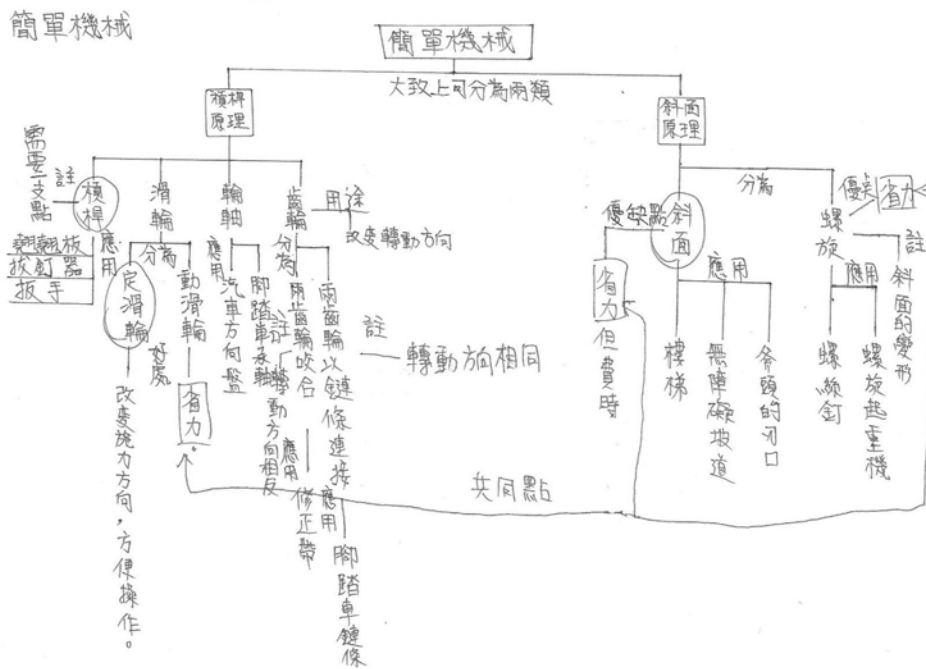 簡單機械
簡單機械
大致上可分為兩類
槓桿
原理
斜面
原理
需要一支點
註
槓桿
應用
翹翹板
拔釘器
扳手
滑輪
分為
定滑輪
好處
改變施力方向，方便操作。
動滑輪
省力。
輪軸
應用
汽車方向盤
腳踏車及軸
齒輪
用途
改变轉動方向
分為
兩齒輪咬合
註
轉動方向相反
應用
修正帶
兩齒輪以鏈條連接
註
轉動方向相同
應用
腳踏車鏈條
分為
斜面
優缺點
省力
但費時
應用
樓梯
無障礙坡道
斧頭的刃口
螺旋
優點
省力
註
斜面的變形
應用
螺絲釘
螺旋起重機
共同點